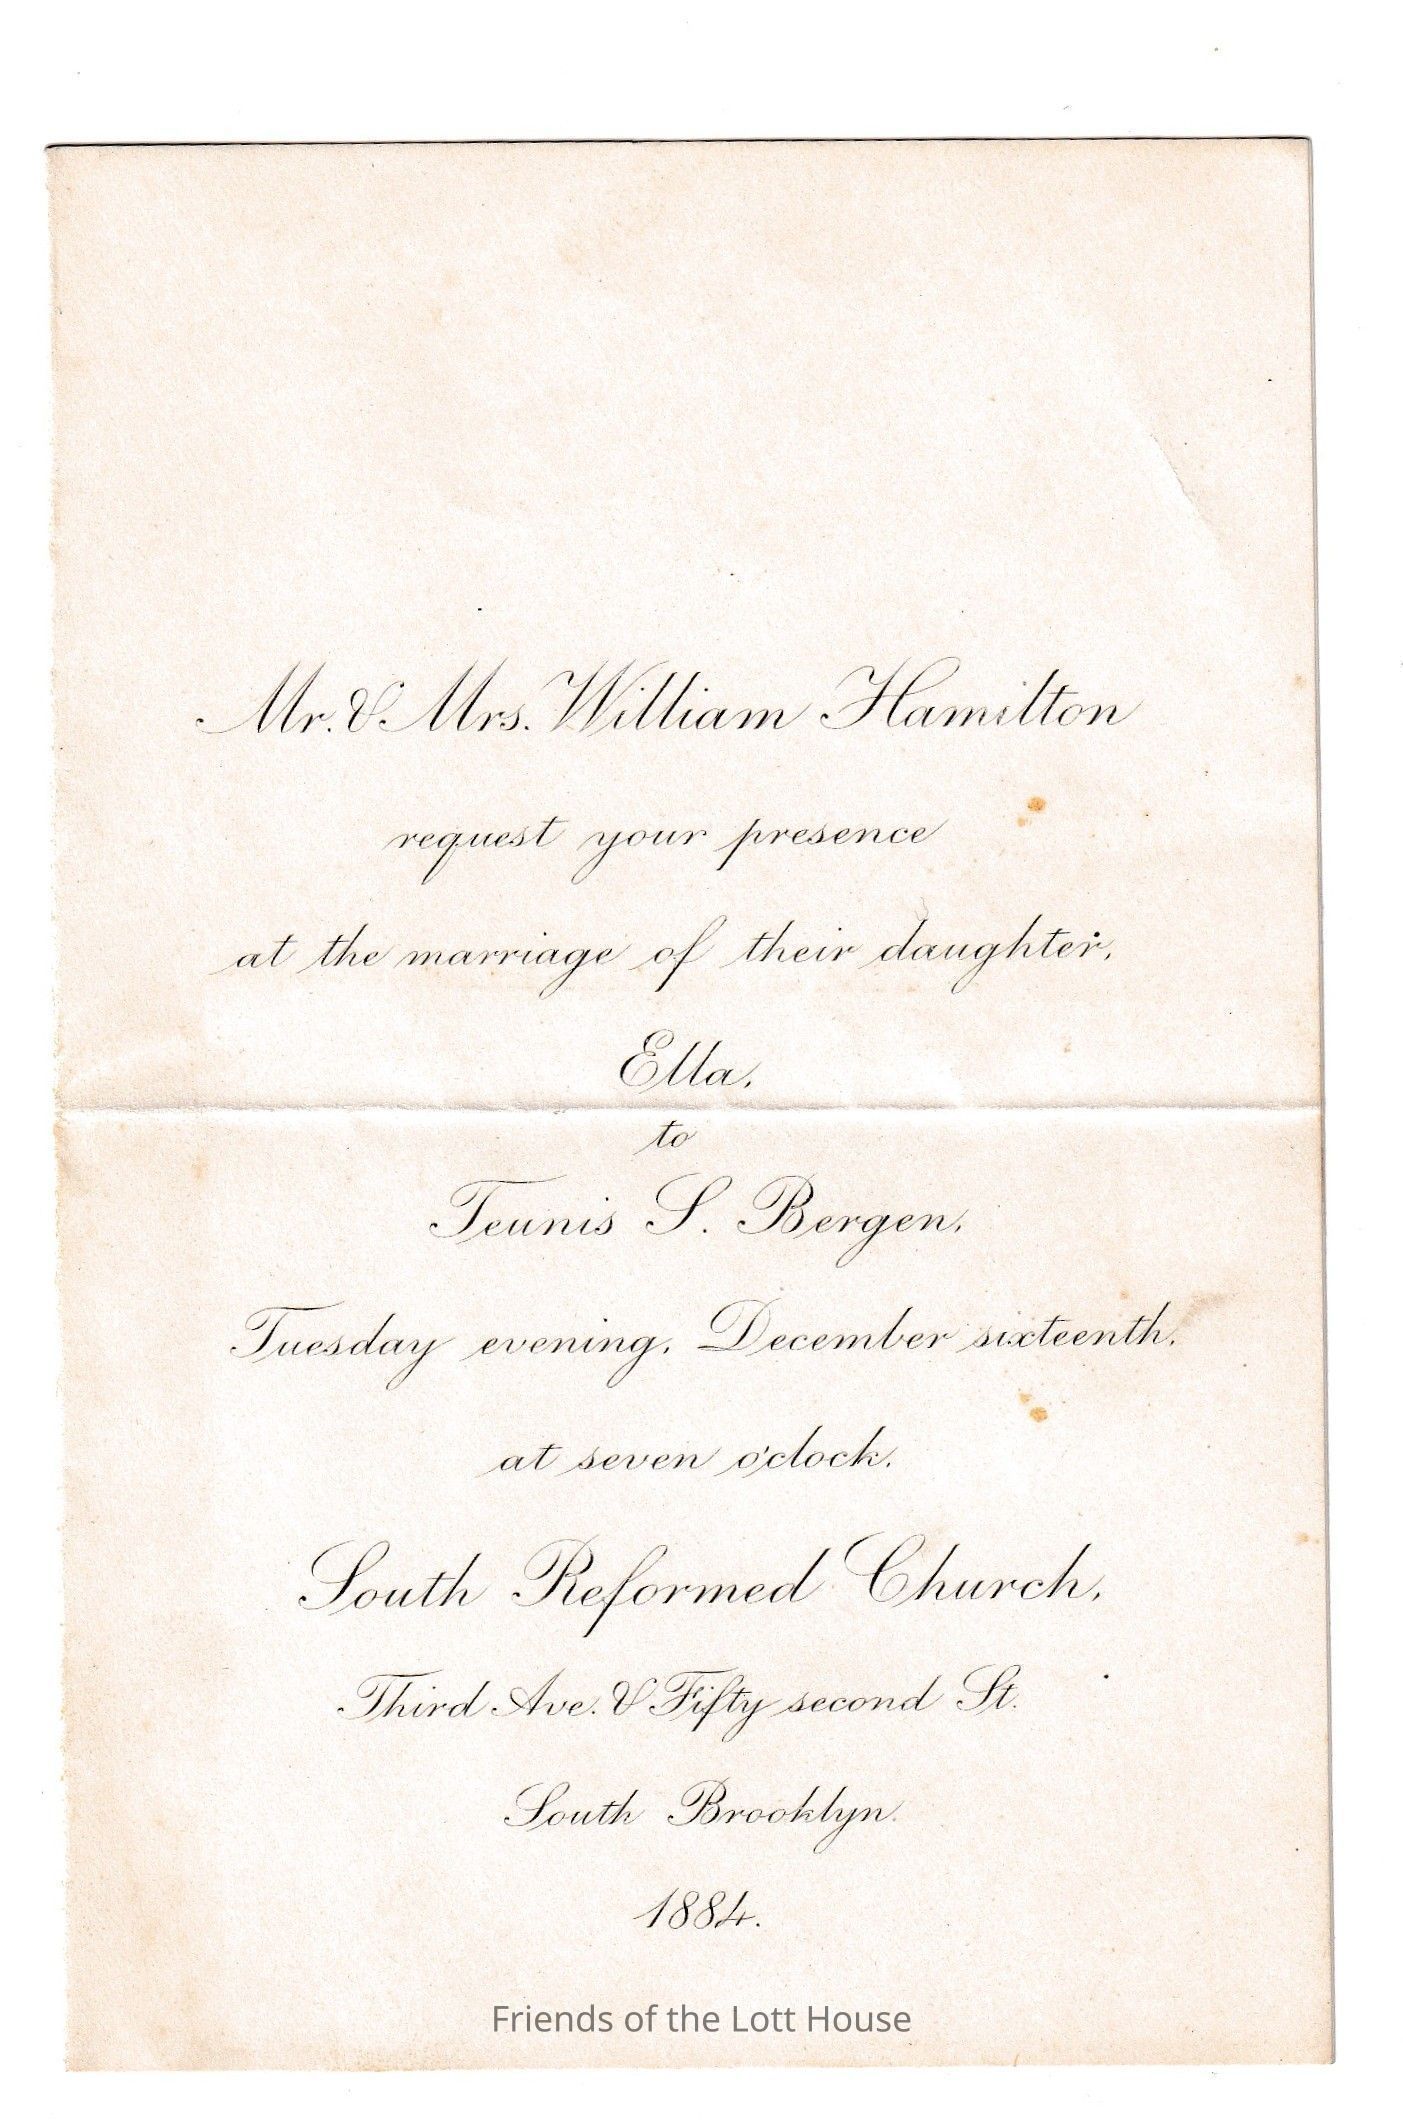 Mr. & Mrs. William Hamilton
request your presence
at the marriage of their daughter,
Ella,
to
Teunis S. Bergen,
Tuesday evening, December sixteenth,
at seven o'clock.
South Reformed Church,
Third Ave. & Fifty second St.
South Brooklyn.
1884.
Friends of the Lott House